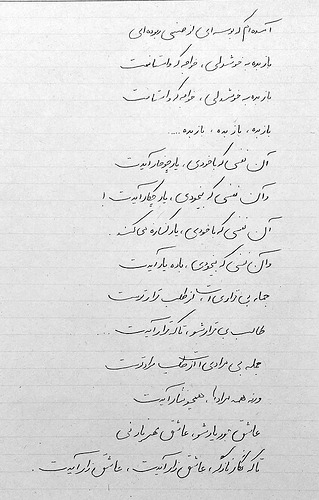 آمده‌ام که بوسه‌ای از صنمی ربوده‌ای
بازبده به خوشدلی، خواجه که واستانمت
بازبده به خوشدلی، خواجه که واستانمت
بازبده، بازبده، بازبده.....
آن نفسی که باخودی، یار چو خار آیدت
وآن نفسی که بیخودی، یار چکار آیدت!
آن نفسی که باخودی، یار کناره می‌کند
وآن نفسی که بیخودی، باده یار آیدت
جمله بی قراری‌ات از طلب قرار تست
طالب بی قرار شو، تا که قرار آیدت...
جمله بی مرادی‌ات از طلب مراد تست
ورنه همه مرادها، همچو نثار آیدت
عاشق جور یار شو، عاشق مهر یار نی
تا که نگار نازگر، عاشق زار آیدت، عاشق زار آیدت.